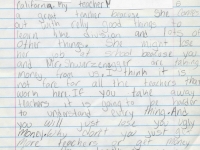 California. My teacher
a great teacher because she
but with really good things to
learn like division and lots of
other things. She might lose
her job if school because you
and Mrs. Schwarzenegger are taking
money from us. I think it
not fair for all the teachers that
work here. If you take away
teachers it is going to be harder
to understand every thing. And
you will just lose you ugly
money. Why don't you just give
more teachers or get money